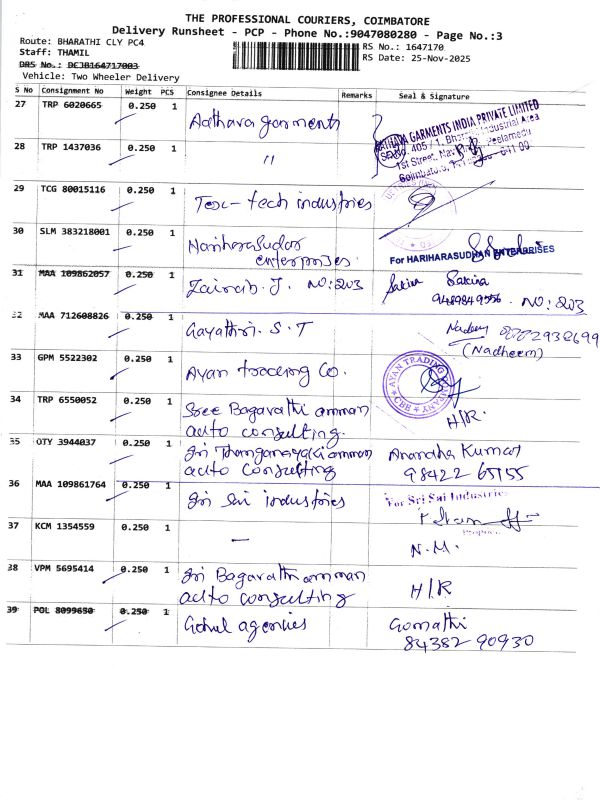 THE PROFESSIONAL COURIERS, COIMBATORE
Delivery Runsheet - PCP - Phone No.:9047080280 - Page No.:3
Route: BHARATHI CLY PC4
Staff: THAMIL
DRS No.: DCJB164717003
Vehicle: Two Wheeler Delivery
RS No.: 1647170
RS Date: 25-Nov-2025
S No Consignment No Weight PCS Consignee Details Remarks Seal & Signature
27 TRP 6020665 0.250 1 Aathava garments
ATHAVA GARMENTS INDIA PRIVATE LIMITED
SF.No. 405 / 1, Bharathi Industrial Area
1st Street, Peelamedu
Coimbatore,
28 TRP 1437036 0.250 1 "
29 TCG 80015116 0.250 1 Tex-tech industries
30 SLM 383218001 0.250 1 Hariharasudar
enterprises.
For HARIHARASUDHAN ENTERPRISES
31 MAA 109862057 0.250 1 Zairab. J. NO:203 Sakira Sakira
9489849556. NO:203
32 MAA 712608826 0.250 1 Gayathri. S. T
(Nadheem)
33 GPM 5522302 0.250 1 Ayan trading Co.
AYAN TRADING COMPANY
CBE
34 TRP 6550052 0.250 1 Sree Bagavathi amman
auto consulting.
H/R.
35 OTY 3944037 0.250 1 Sri Thanganayaki amman
auto Consulting
Anandha Kumar
98422 65155
36 MAA 109861764 0.250 1 Sri Sai industries
For Sri Sai Industries
37 KCM 1354559 0.250 1 —
N.M.
38 VPM 5695414 0.250 1 Sri Bagavathi amman
auto consulting
H/R
39 POL 8099650 0.250 1 Gokul agencies
Gomathi
84382 90930